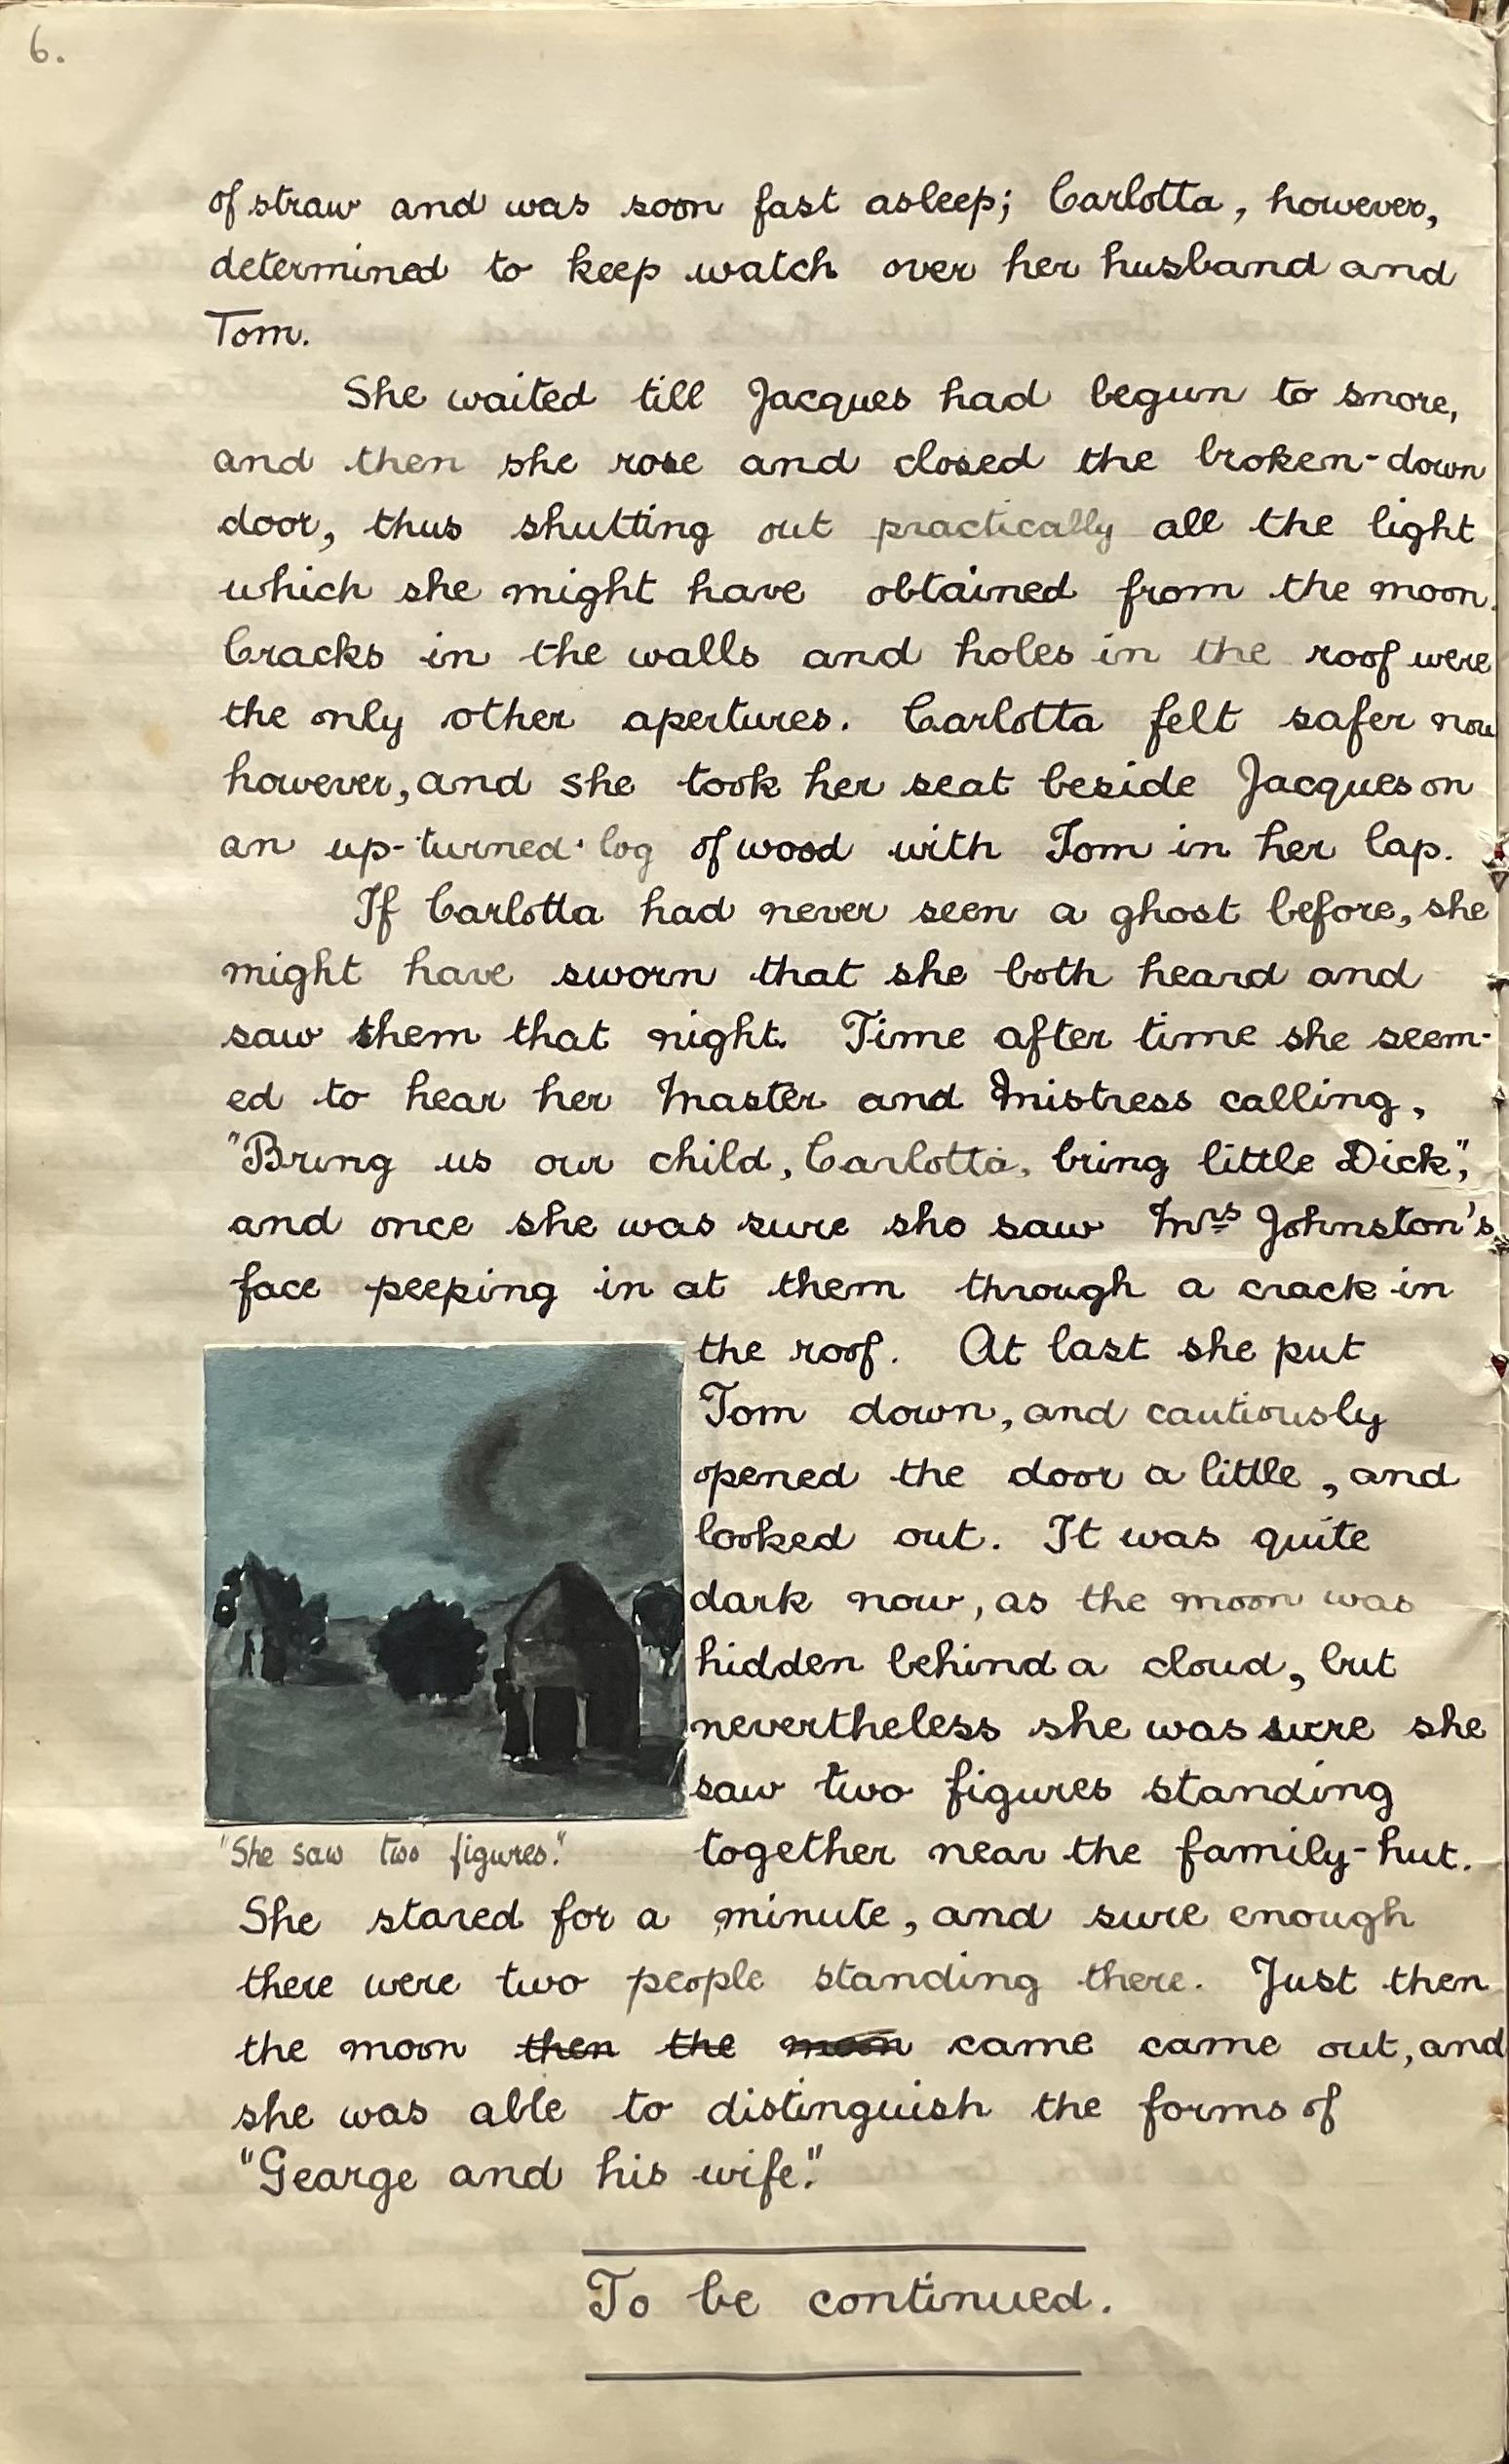 6.
of straw and was soon fast asleep; Carlotta, however,
determined to keep watch over her husband and
Tom.
She waited till Jacques had begun to snore,
and then she rose and closed the broken-down
door, thus shutting out practically all the light
which she might have obtained from the moon.
Cracks in the walls and holes in the roof were
the only other apertures. Carlotta felt safer now
however, and she took her seat beside Jacques on
an up-turned log of wood with Tom in her lap.
If Carlotta had never seen a ghost before, she
might have sworn that she both heard and
saw them that night. Time after time she seem-
ed to hear her Master and Mistress calling,
"Bring us our child, Carlotta, bring little Dick",
and once she was sure sho saw Mrs Johnston's
face peeping in at them through a crack in
the roof. At last she put
Tom down, and cautiously
opened the door a little, and
looked out. It was quite
dark now, as the moon was
hidden behind a cloud, but
nevertheless she was sure she
saw two figures standing
together near the family-hut.
"She saw two figures."
She stared for a minute, and sure enough
there were two people standing there. Just then
the moon then the moon came came out, and
she was able to distinguish the forms of
"Gearge and his wife."
To be continued.